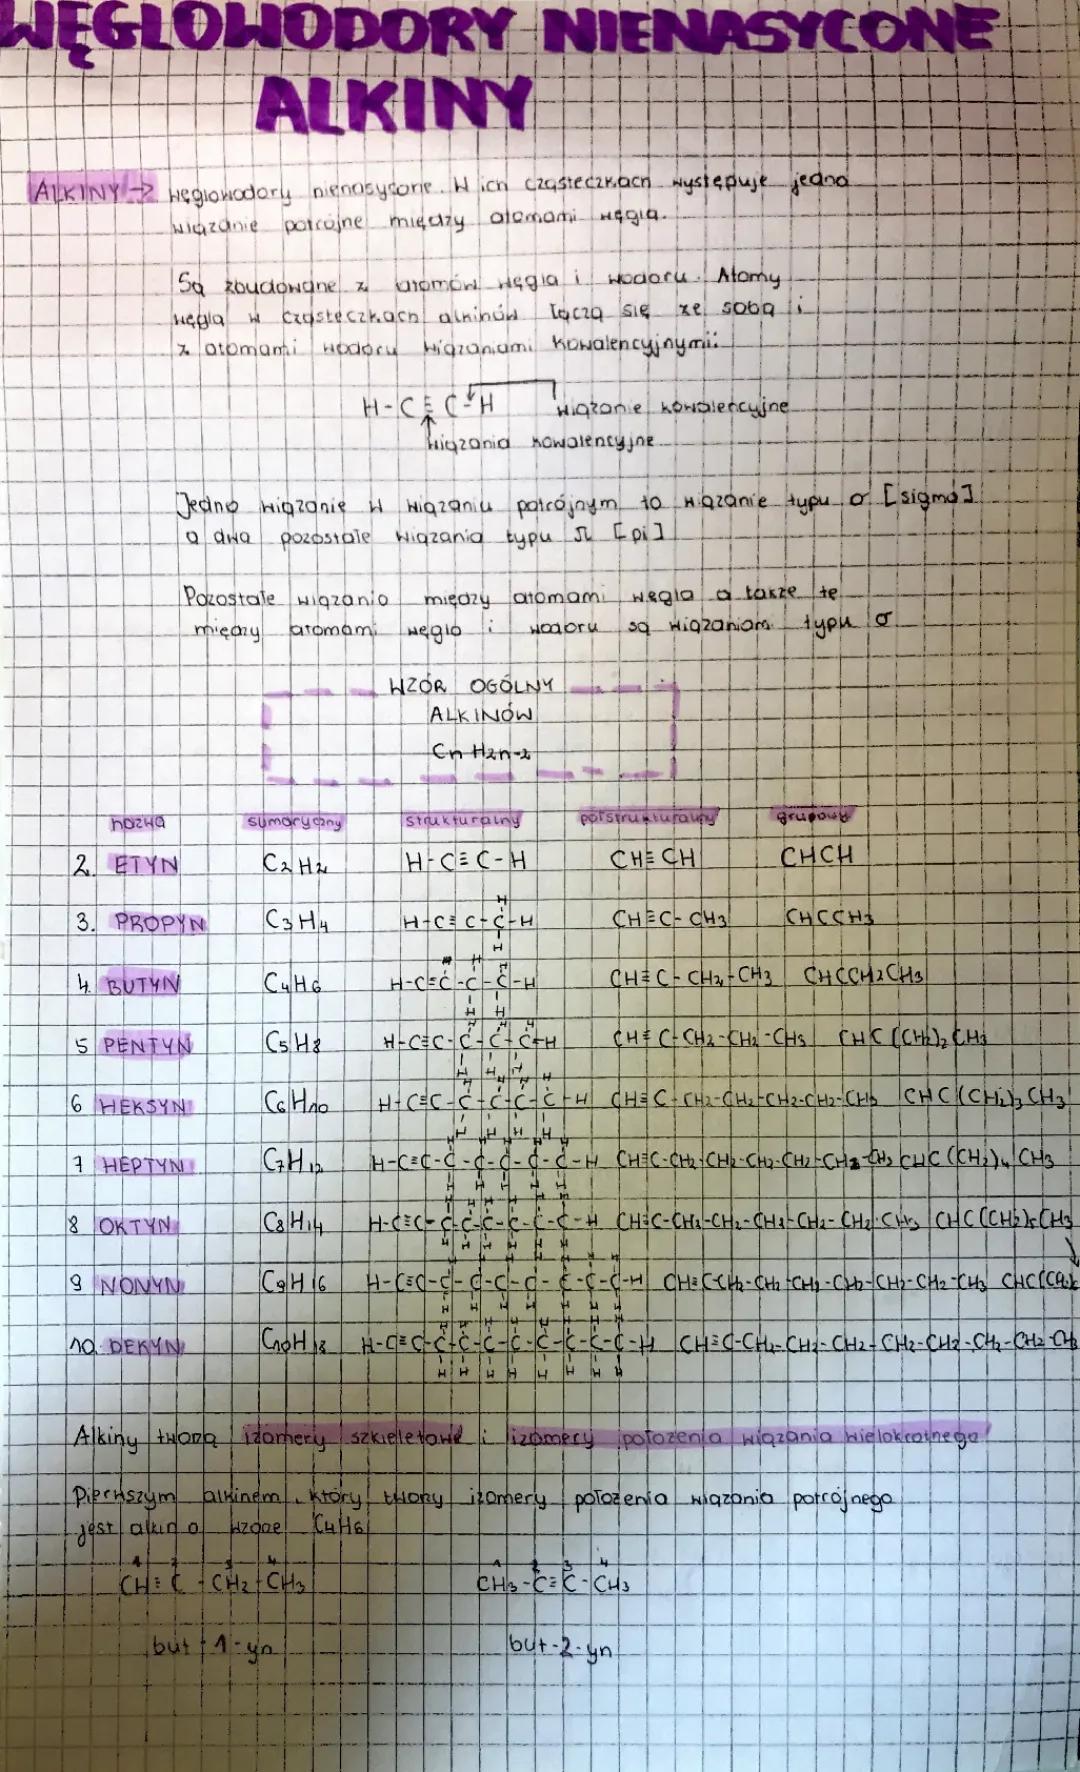 WĘGLOWODORY NIENASYCONE
ALKINY
ALKINY → węglowodory nienasycone. W ich cząsteczkach występuje jedno
wiązanie potrójne między atomami węgla.
Są zbudowane z atomów węgla i wodoru. Atomy
węgla w cząsteczkach alkinów łączą się ze sobą i
z atomami wodoru wiązaniami kowalencyjnymi.
H-C≡C-H wiązanie kowalencyjne
wiązania kowalencyjne
Jedno wiązanie w wiązaniu potrójnym to wiązanie typu σ [sigma]
a dwa pozostałe wiązania typu π [pi]
Pozostałe wiązania między atomami węgla a także te
między atomami węgla i wodoru są wiązaniami typu σ
WZÓR OGÓLNY
ALKINÓW
CnH2n-2
nazwa sumaryczny strukturalny półstrukturalny grupowy
2. ETYN C2H2 H-C≡C-H CH≡CH CHCH
3. PROPYN C3H4 H-C≡C-C-H CH≡C-CH3 CHCCH3
4. BUTYN C4H6 H-C≡C-C-C-H CH≡C-CH2-CH3 CHCCH2CH3
5 PENTYN C5H8 H-C≡C-C-C-C-H CH≡C-CH2-CH2-CH3 CHC(CH2)2CH3
6 HEKSYN C6H10 H-C≡C-C-C-C-C-H CH≡C-CH2-CH2-CH2-CH3 CHC(CH2)3CH3
7 HEPTYN C7H12 H-C≡C-C-C-C-C-C-H CH≡C-CH2-CH2-CH2-CH2-CH3 CHC(CH2)4CH3
8 OKTYN C8H14 H-C≡C-C-C-C-C-C-C-H CH≡C-CH2-CH2-CH2-CH2-CH2-CH3 CHC(CH2)5CH3
9 NONYN C9H16 H-C≡C-C-C-C-C-C-C-C-H CH≡C-CH2-CH2-CH2-CH2-CH2-CH2-CH3
10. DEKYN C10H18 H-C≡C-C-C-C-C-C-C-C-C-H CH≡C-CH2-CH2-CH2-CH2-CH2-CH2-CH2-CH3
Alkiny tworzą izomery szkieletowe i izomery położenia wiązania wielokrotnego
Pierwszym alkinem, który tworzy izomery położenia wiązania potrójnego
jest alkin o wzorze C4H6
1 2 3 4 1 2 3 4
CH≡C-CH2-CH3 CH3-C≡C-CH3
but-1-yn but-2-yn